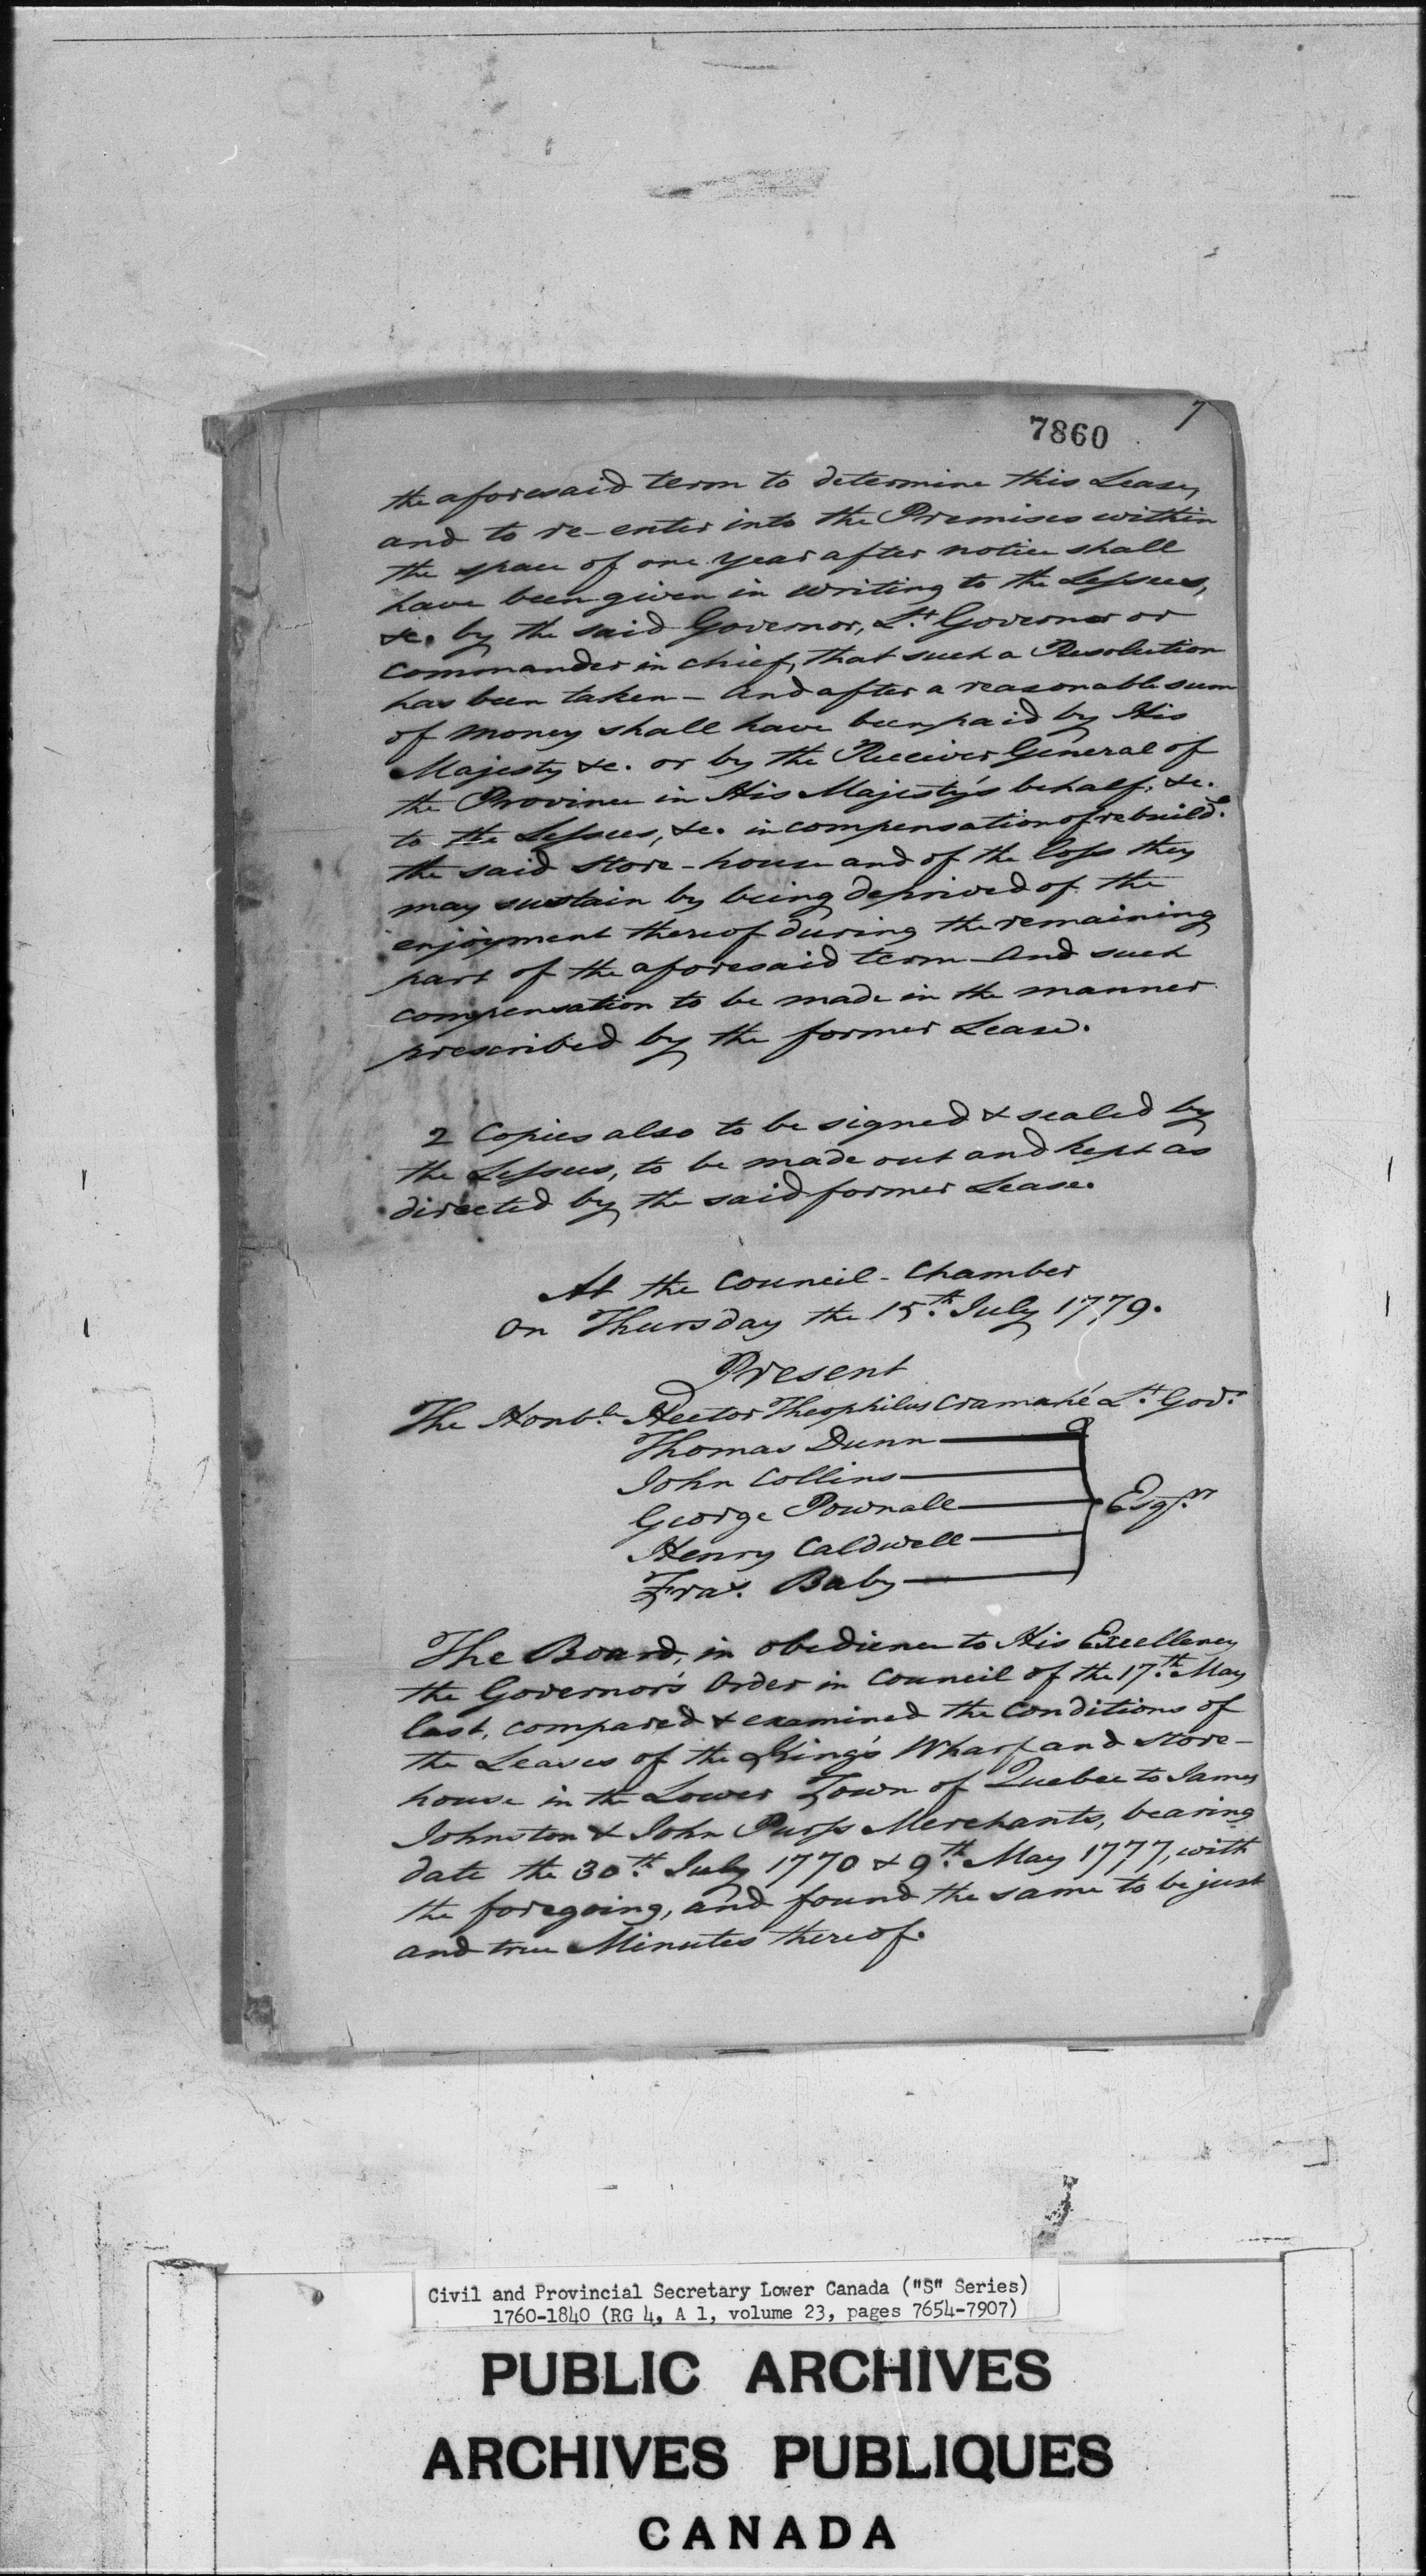 7
7860
the aforesaid term to determine this Lease,
and to re-enter into the Premises within
the space of one year after notice shall
have been given in writing to the Lessees,
&c. by the said Governor, Lt. Governor or
Commander in chief, that such a Resolution
has been taken - And after a reasonable sum
of money shall have been paid by His
Majesty &c. or by the Receiver General of
the Province in His Majesty's behalf, &c.
to the Lessees, &c. in compensation of rebuildg.
the said Store-house and of the loss they
may sustain by being deprived of the
enjoyment thereof during the remaining
part of the aforesaid term - And such
compensation to be made in the manner
prescribed by the former Lease.
2 Copies also to be signed & sealed by
the Lessees, to be made out and kept as
directed by the said former Lease.
At the Council-Chamber
on Thursday the 15th. July 1779.
Present
The Honble. Hector Theophilus Cramahé Lt. Govr.
Thomas Dunn
John Collins
George Pownall
Henry Caldwell
Fras. Baby
Esqrs.
The Board, in obedience to His Excellency
the Governor's Order in Council of the 17th. May
last, compared & examined the conditions of
the Leases of the King's Wharf and Store-
house in the Lower Town of Quebec to James
Johnston & John Purss Merchants, bearing
date the 30th. July 1770 & 9th. May 1777, with
the foregoing, and found the same to be just
and true Minutes thereof.
Civil and Provincial Secretary Lower Canada ("S" Series)
1760-1840 (RG 4, A 1, volume 23, pages 7654-7907)
PUBLIC ARCHIVES
ARCHIVES PUBLIQUES
CANADA